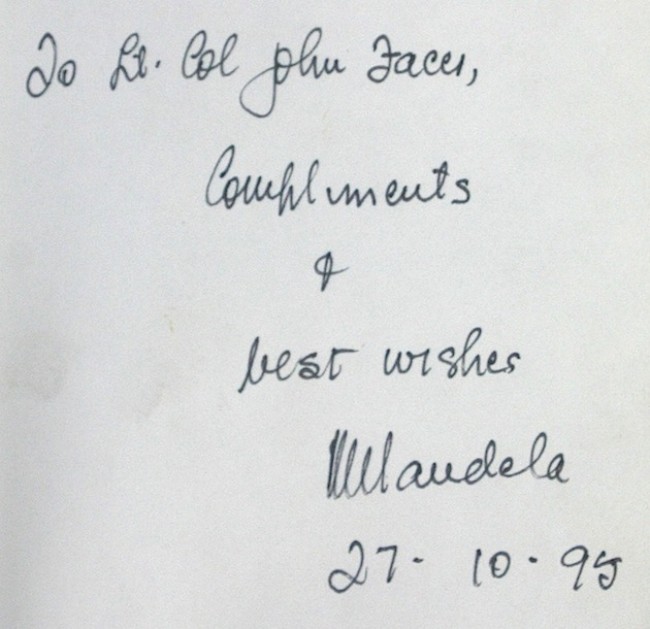 To Lt. Col John Facer,
Compliments
&
best wishes
Mandela
27- 10 · 95